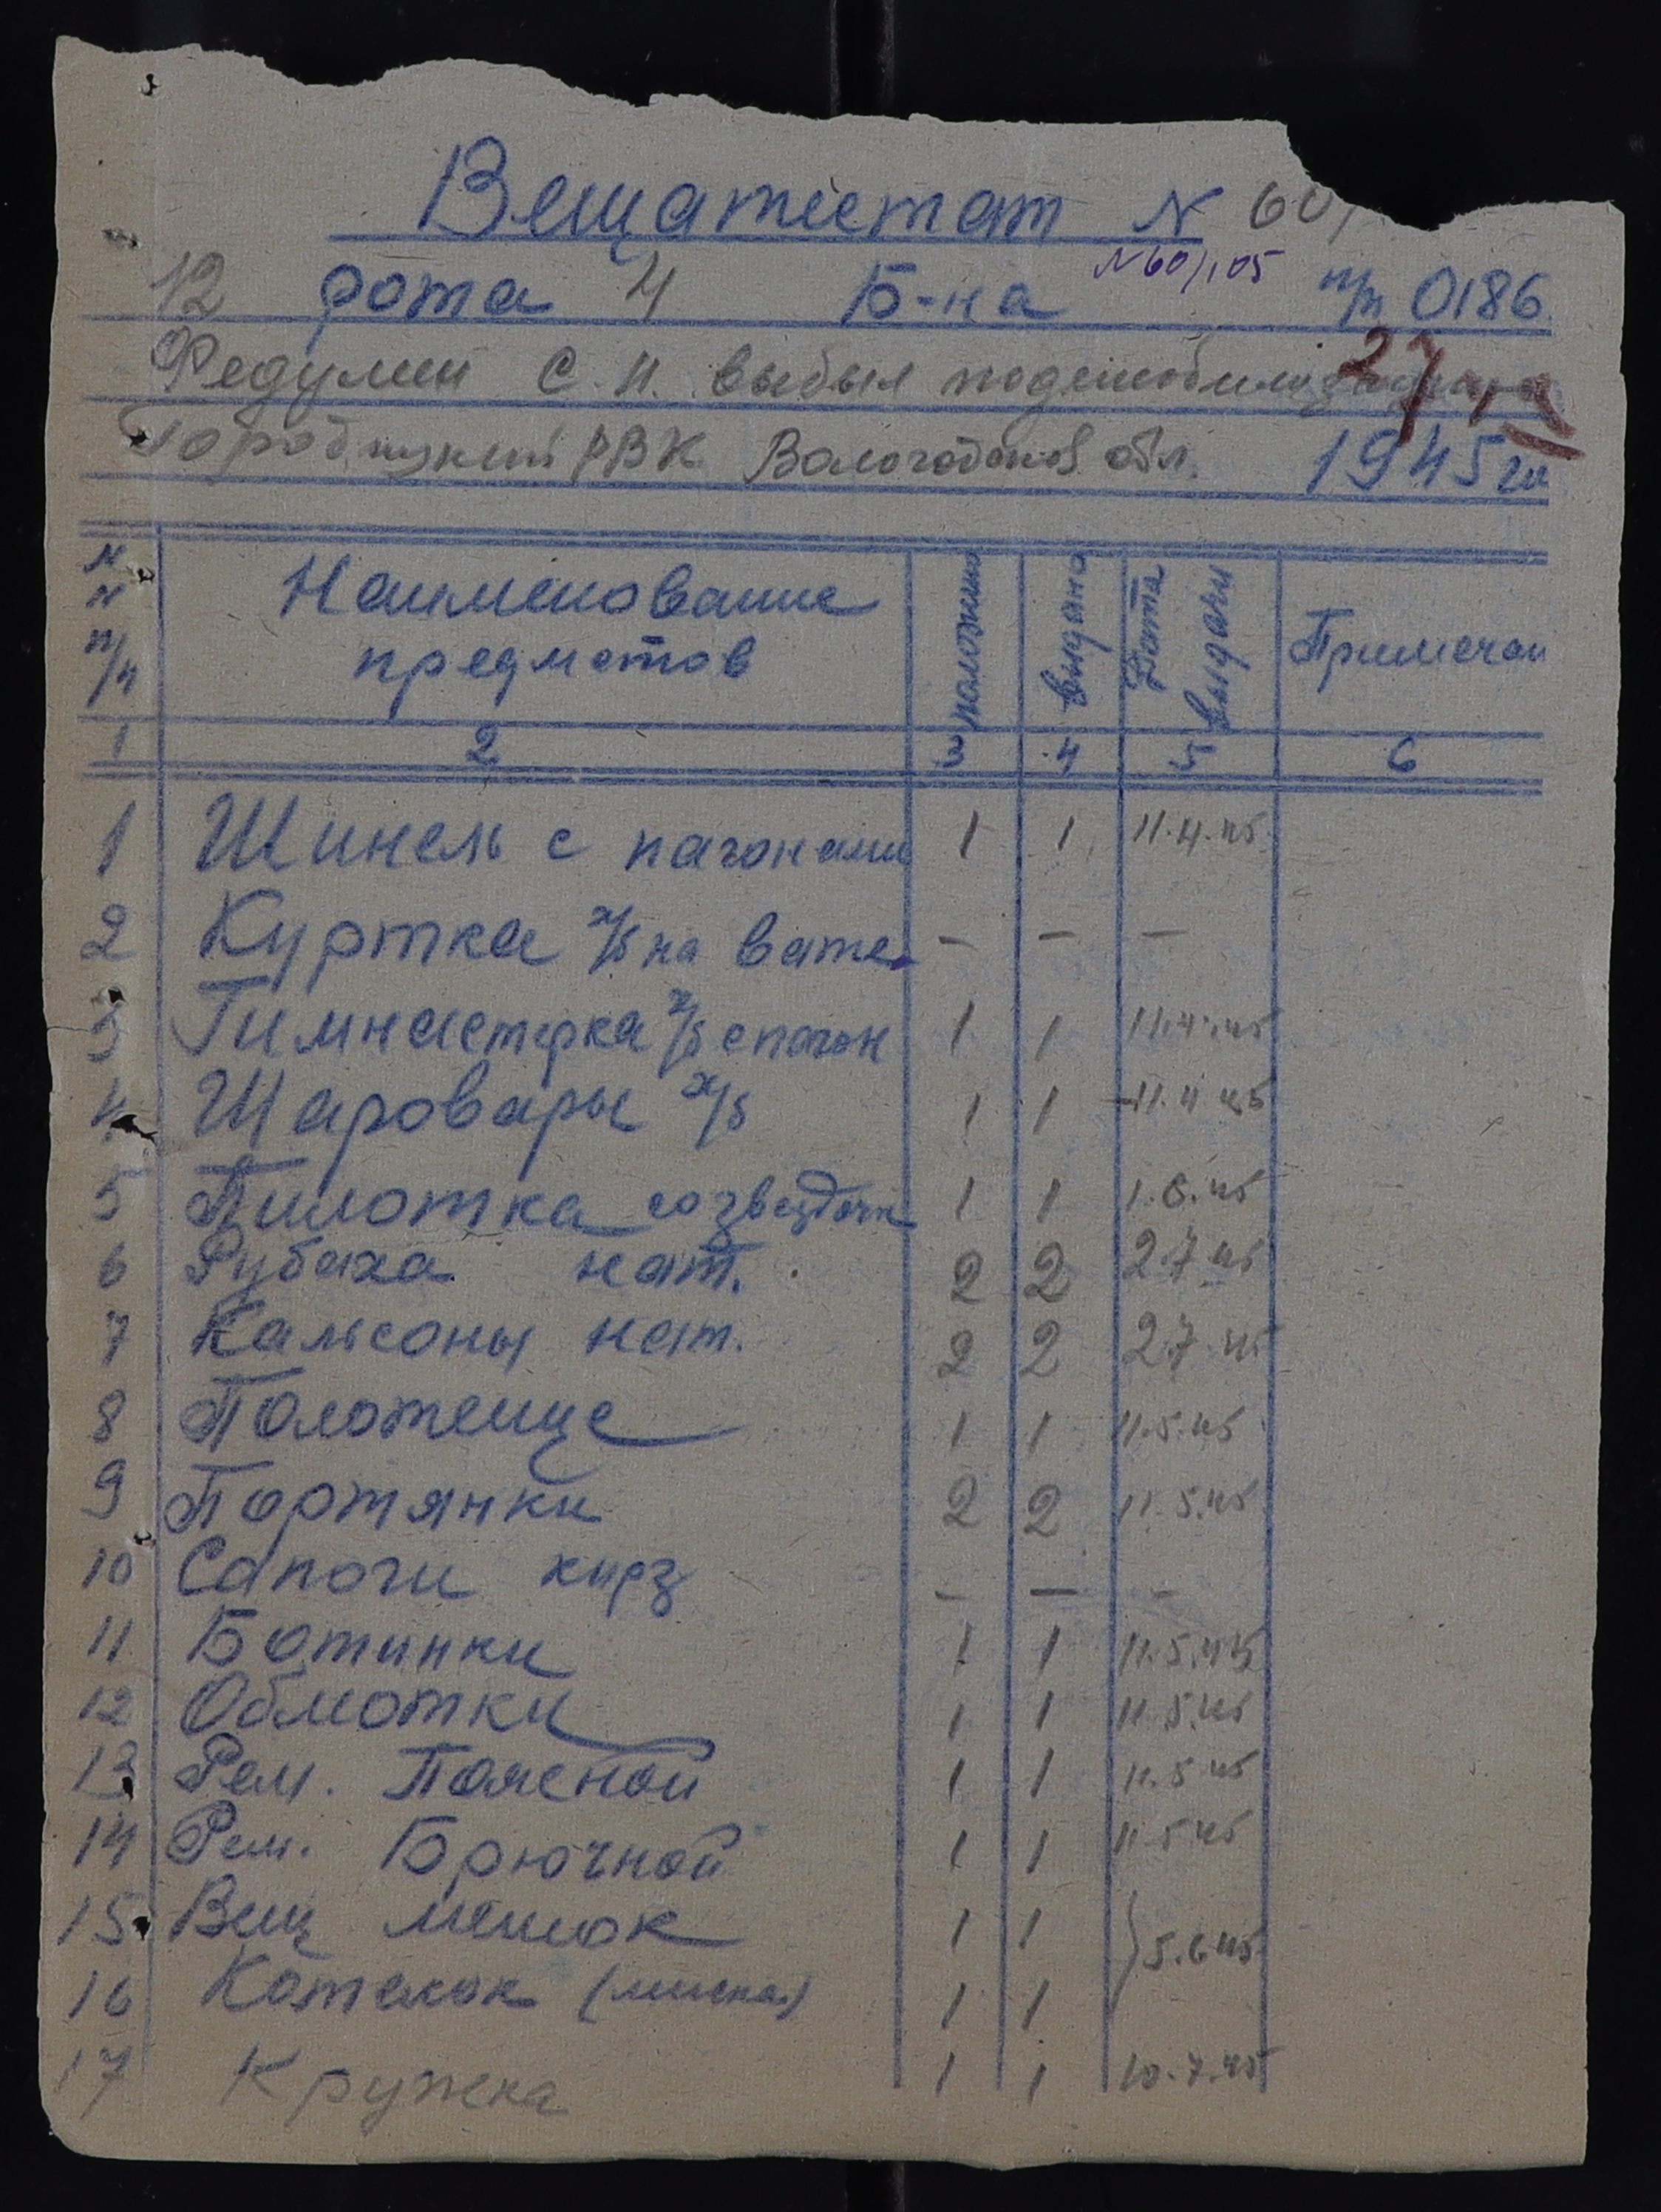 Вещатестат N 60/
N 60/105
12 рота 4 Б-на п/п 0186
Федулин С. И. выбыл подемобилизации
27
Городищенский РВК Вологодской обл. 1945 го
N N п/п Наименование предметов положено выдано Дата выдачи Примечан
1 2 3 4 5 6
1 Шинель с пагонами 1 1 11.4.45
2 Куртка х/б на вате - - -
3 Гимнастерка х/б с погон 1 1 11.4.45
4 Шаровары х/б 1 1 11.4.45
5 Пилотка со звездочк 1 1 1.6.45
6 Рубаха нат. 2 2 2.7.45
7 Кальсоны нат. 2 2 2.7.45
8 Полотенце 1 1 11.5.45
9 Портянки 2 2 11.5.45
10 Сапоги кирз - - -
11 Ботинки 1 1 11.5.45
12 Обмотки 1 1 11.5.45
13 Рем. Поясной 1 1 11.5.45
14 Рем. Брючной 1 1 11.5.45
15 Вещ мешок 1 1 } 5.6.45
16 Котелок (миска) 1 1
17 Кружка 1 1 10.7.45